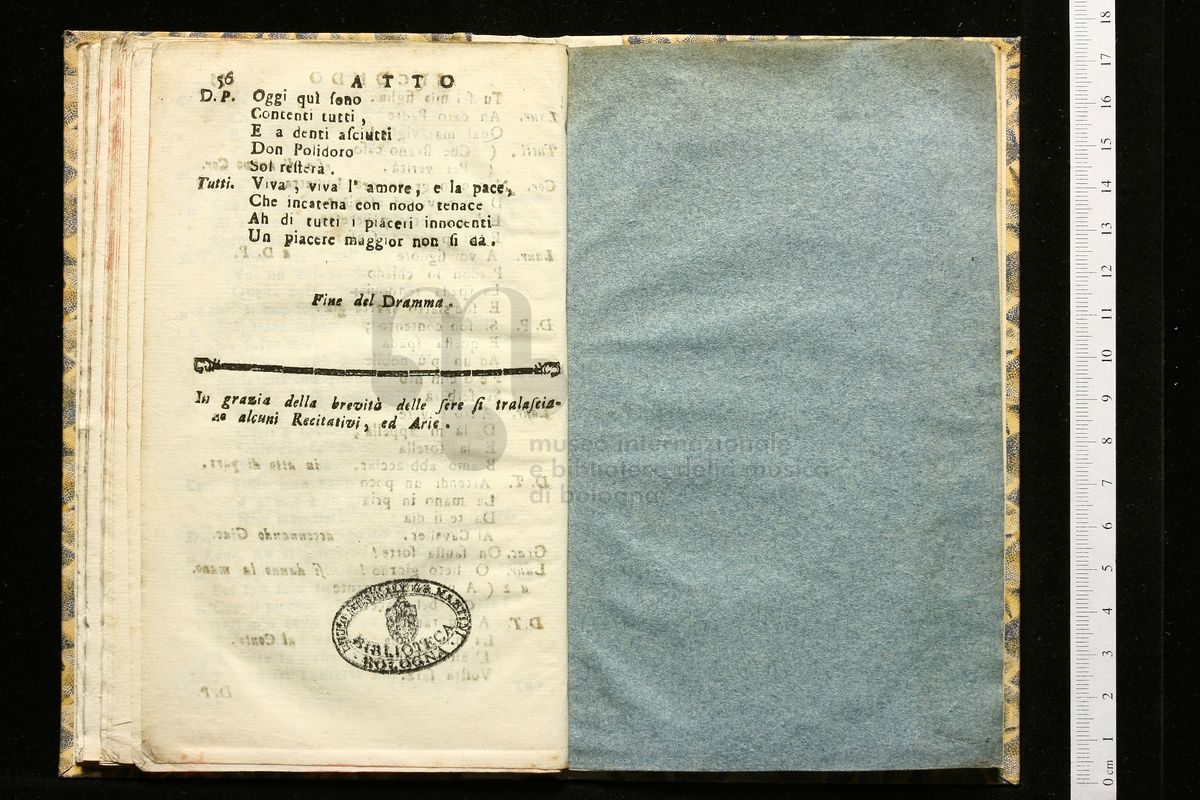 56 ATTO
D. P. Oggi quì ſono
Contenti tutti,
E a denti aſciutti
Don Polidoro
Sol reſterà.
Tutti. Viva, viva l' amore, e la pace,
Che incatena con nodo tenace
Ah di tutti i piaceri innocenti
Un piacere maggior non ſi dà.
Fine del Dramma.
In grazia della brevità delle ſere ſi tralaſcia-
no alcuni Recitativi, ed Arie.
museo internazionale
e biblioteca della musica
di bologna
LICEO MUSICALE G.B. MARTINI
BIBLIOTECA
BOLOGNA
D. P.
0 cm 1 2 3 4 5 6 7 8 9 10 11 12 13 14 15 16 17 18